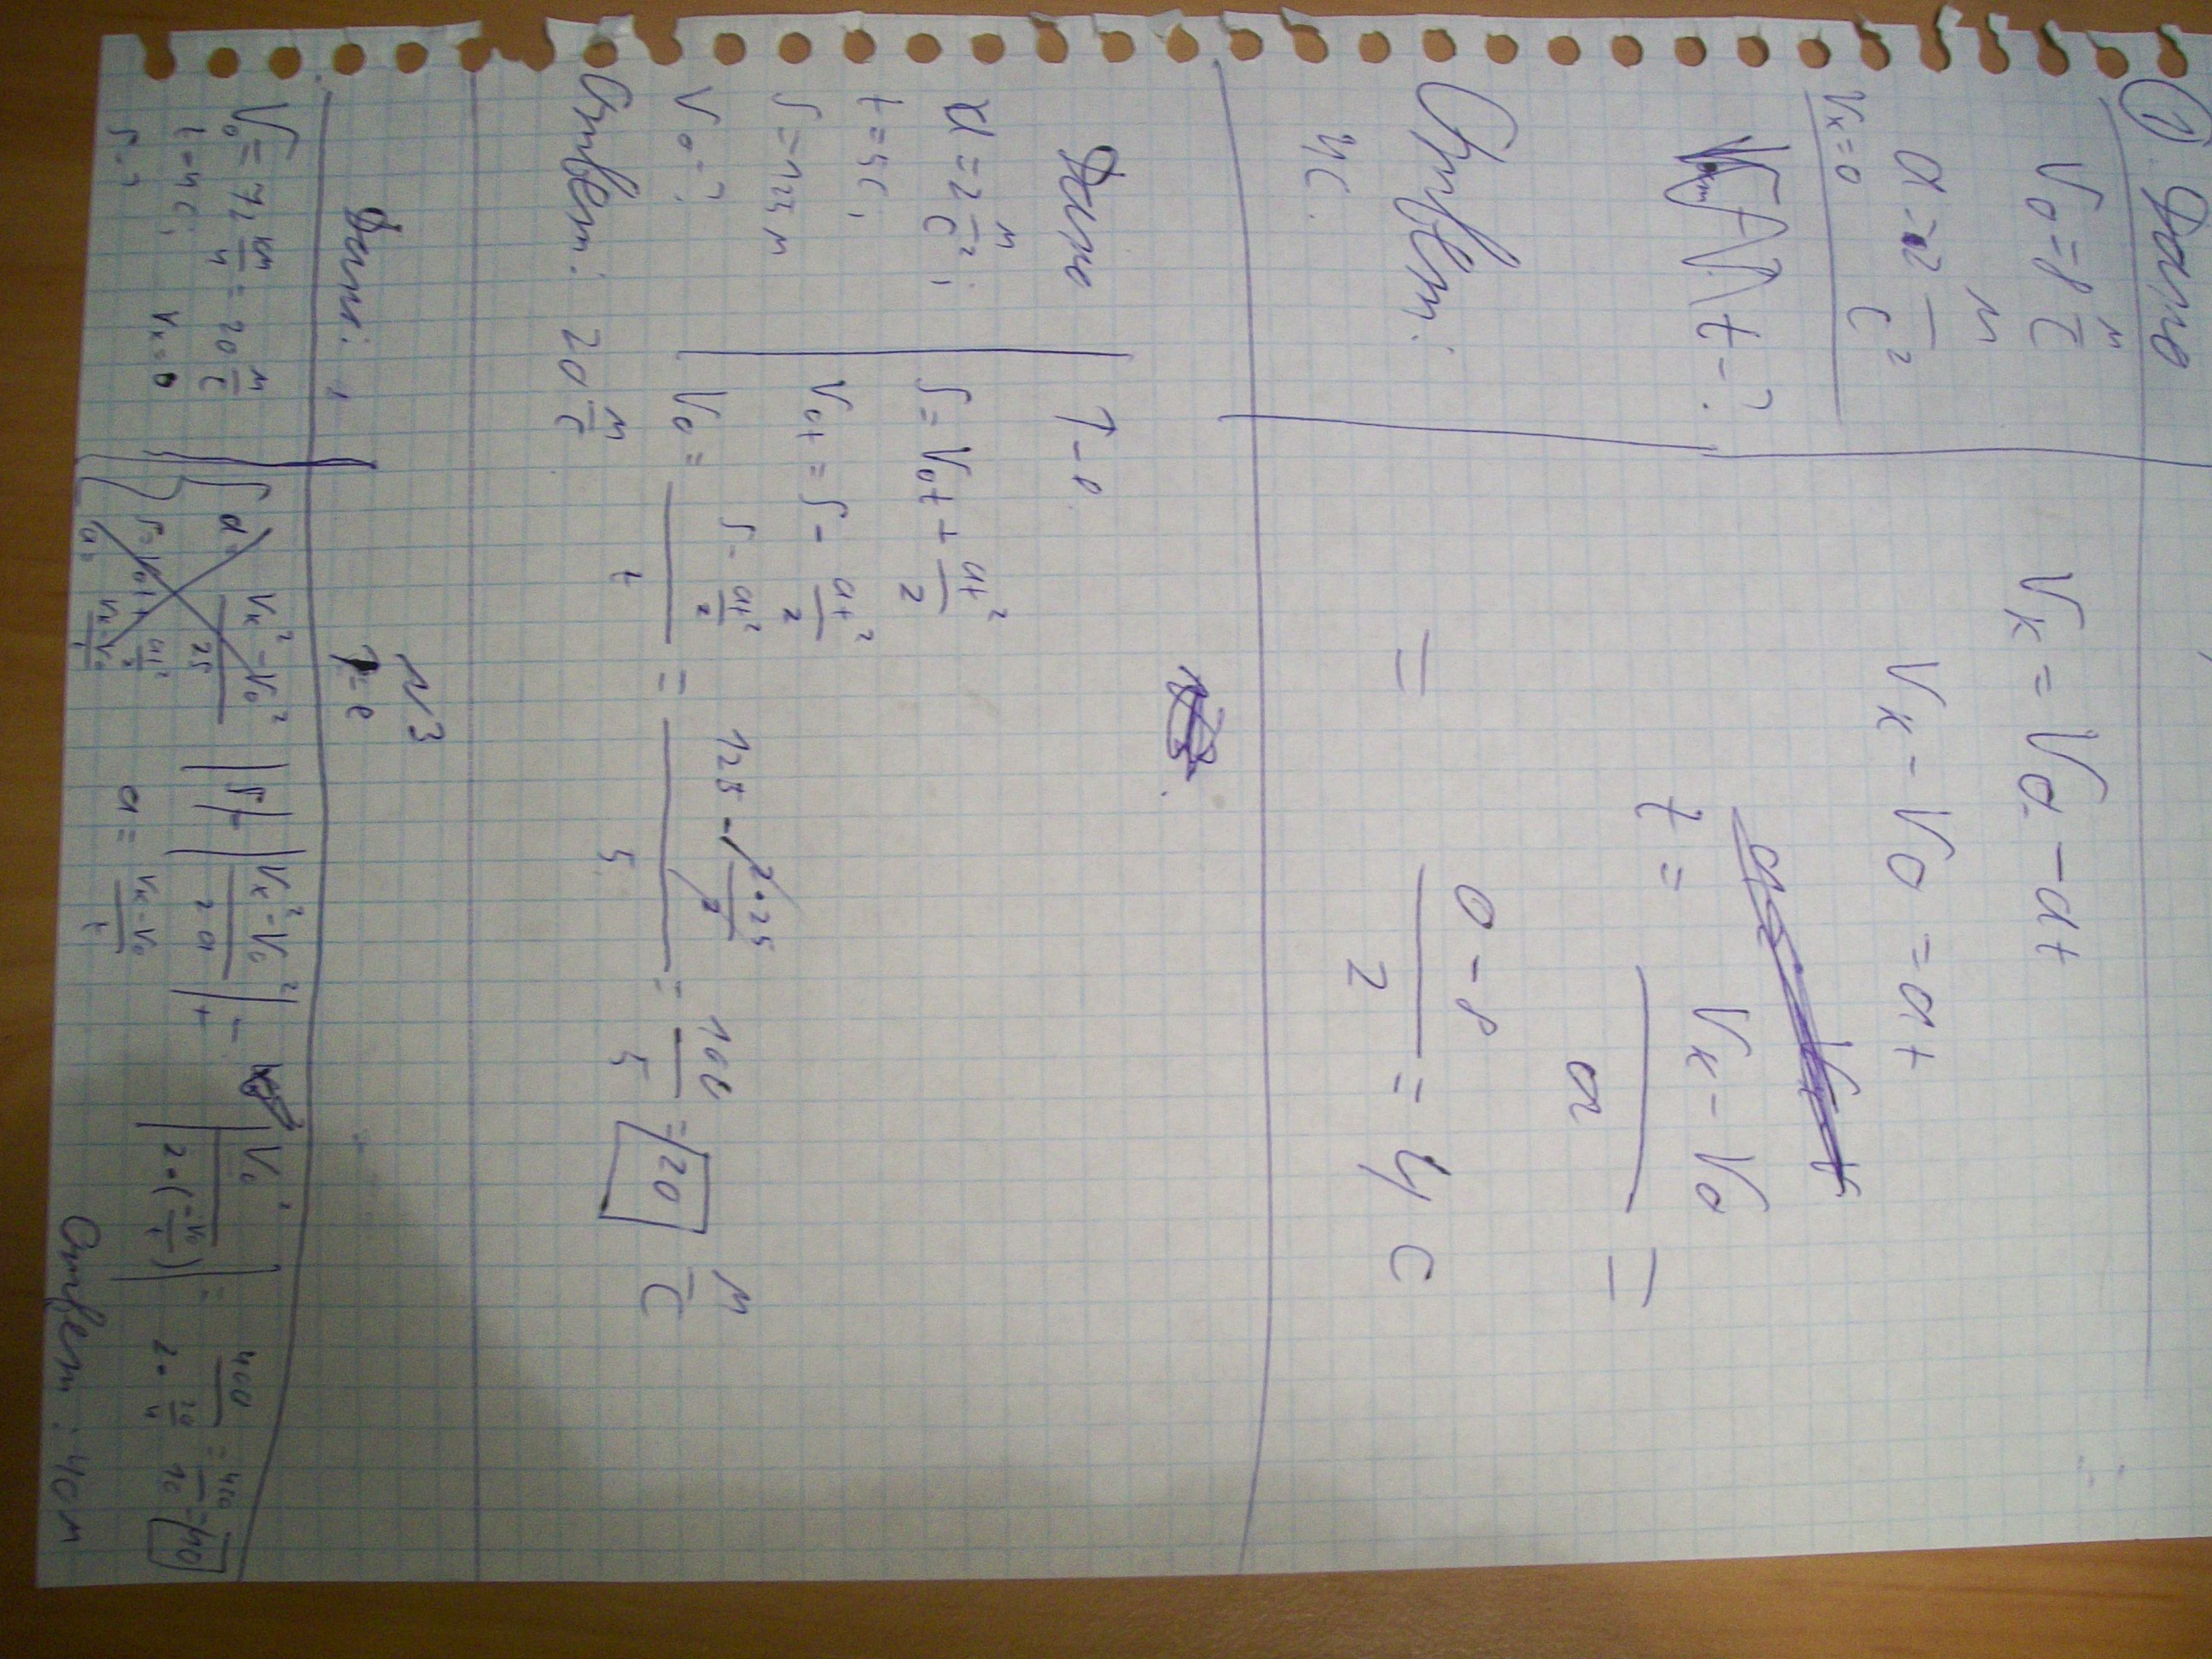 ① Дано
V₀ = 8 м/с
a = 2 м/с²
Vк = 0
t - ?
Vк = V₀ - at
Vк - V₀ = at
t = (Vк - V₀)/a =
= (0 - 8)/2 = 4 с
Ответ:
4с.
Дано
a = 2 м/с² ;
t = 5с,
S = 125 м
V₀ - ?
↑ - е
S = V₀t + at²/2
V₀t = S - at²/2
V₀ = (S - at²/2)/t = (125 - 2•25/2)/5 = 100/5 = 20 м/с
Ответ: 20 м/с
N3
Дано:
V₀ = 72 км/ч = 20 м/с
t = 4 с; Vк = 0
S - ?
|S| = |(Vк² - V₀²)/2a| =
a = (Vк - V₀)/t
|V₀²/(2•(-V₀/t))| = 400/(2•20/4) = 400/10 = 40
Ответ: 40 м